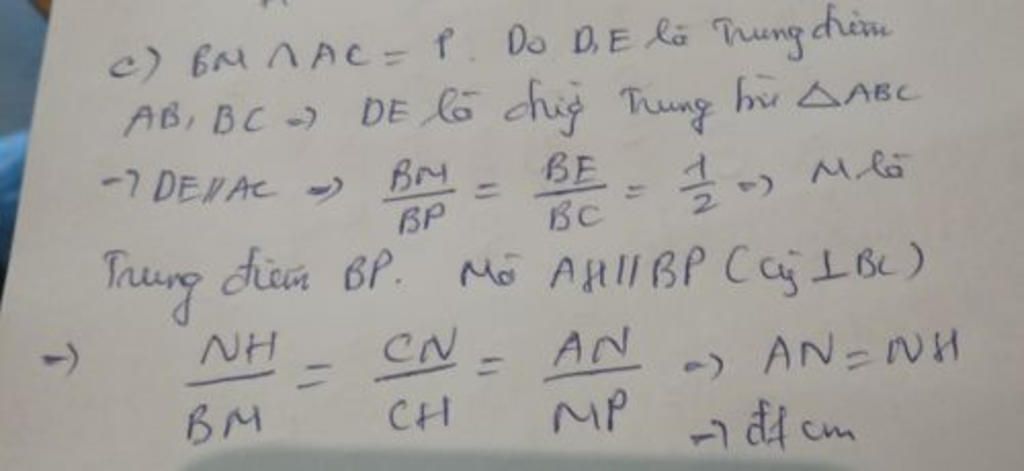 c) BM ∩ AC = P. Do D, E là Trung điểm
AB, BC => DE là đường Trung bình △ABC
-> DE // AC => BM/BP = BE/BC = 1/2 => M là
Trung điểm BP. Mà AH // BP (cùng ⊥ BC)
=> NH/BM = CN/CH = AN/MP => AN = NH
-> đfcm